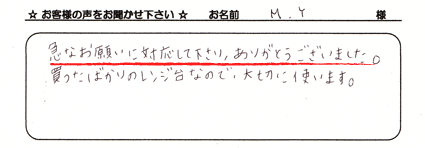 ☆ お客様の声をお聞かせ下さい ☆ お名前 M.Y 様
急なお願いに対応して下さり、ありがとうございました。
買ったばかりのレンジ台なので、大切に使います。